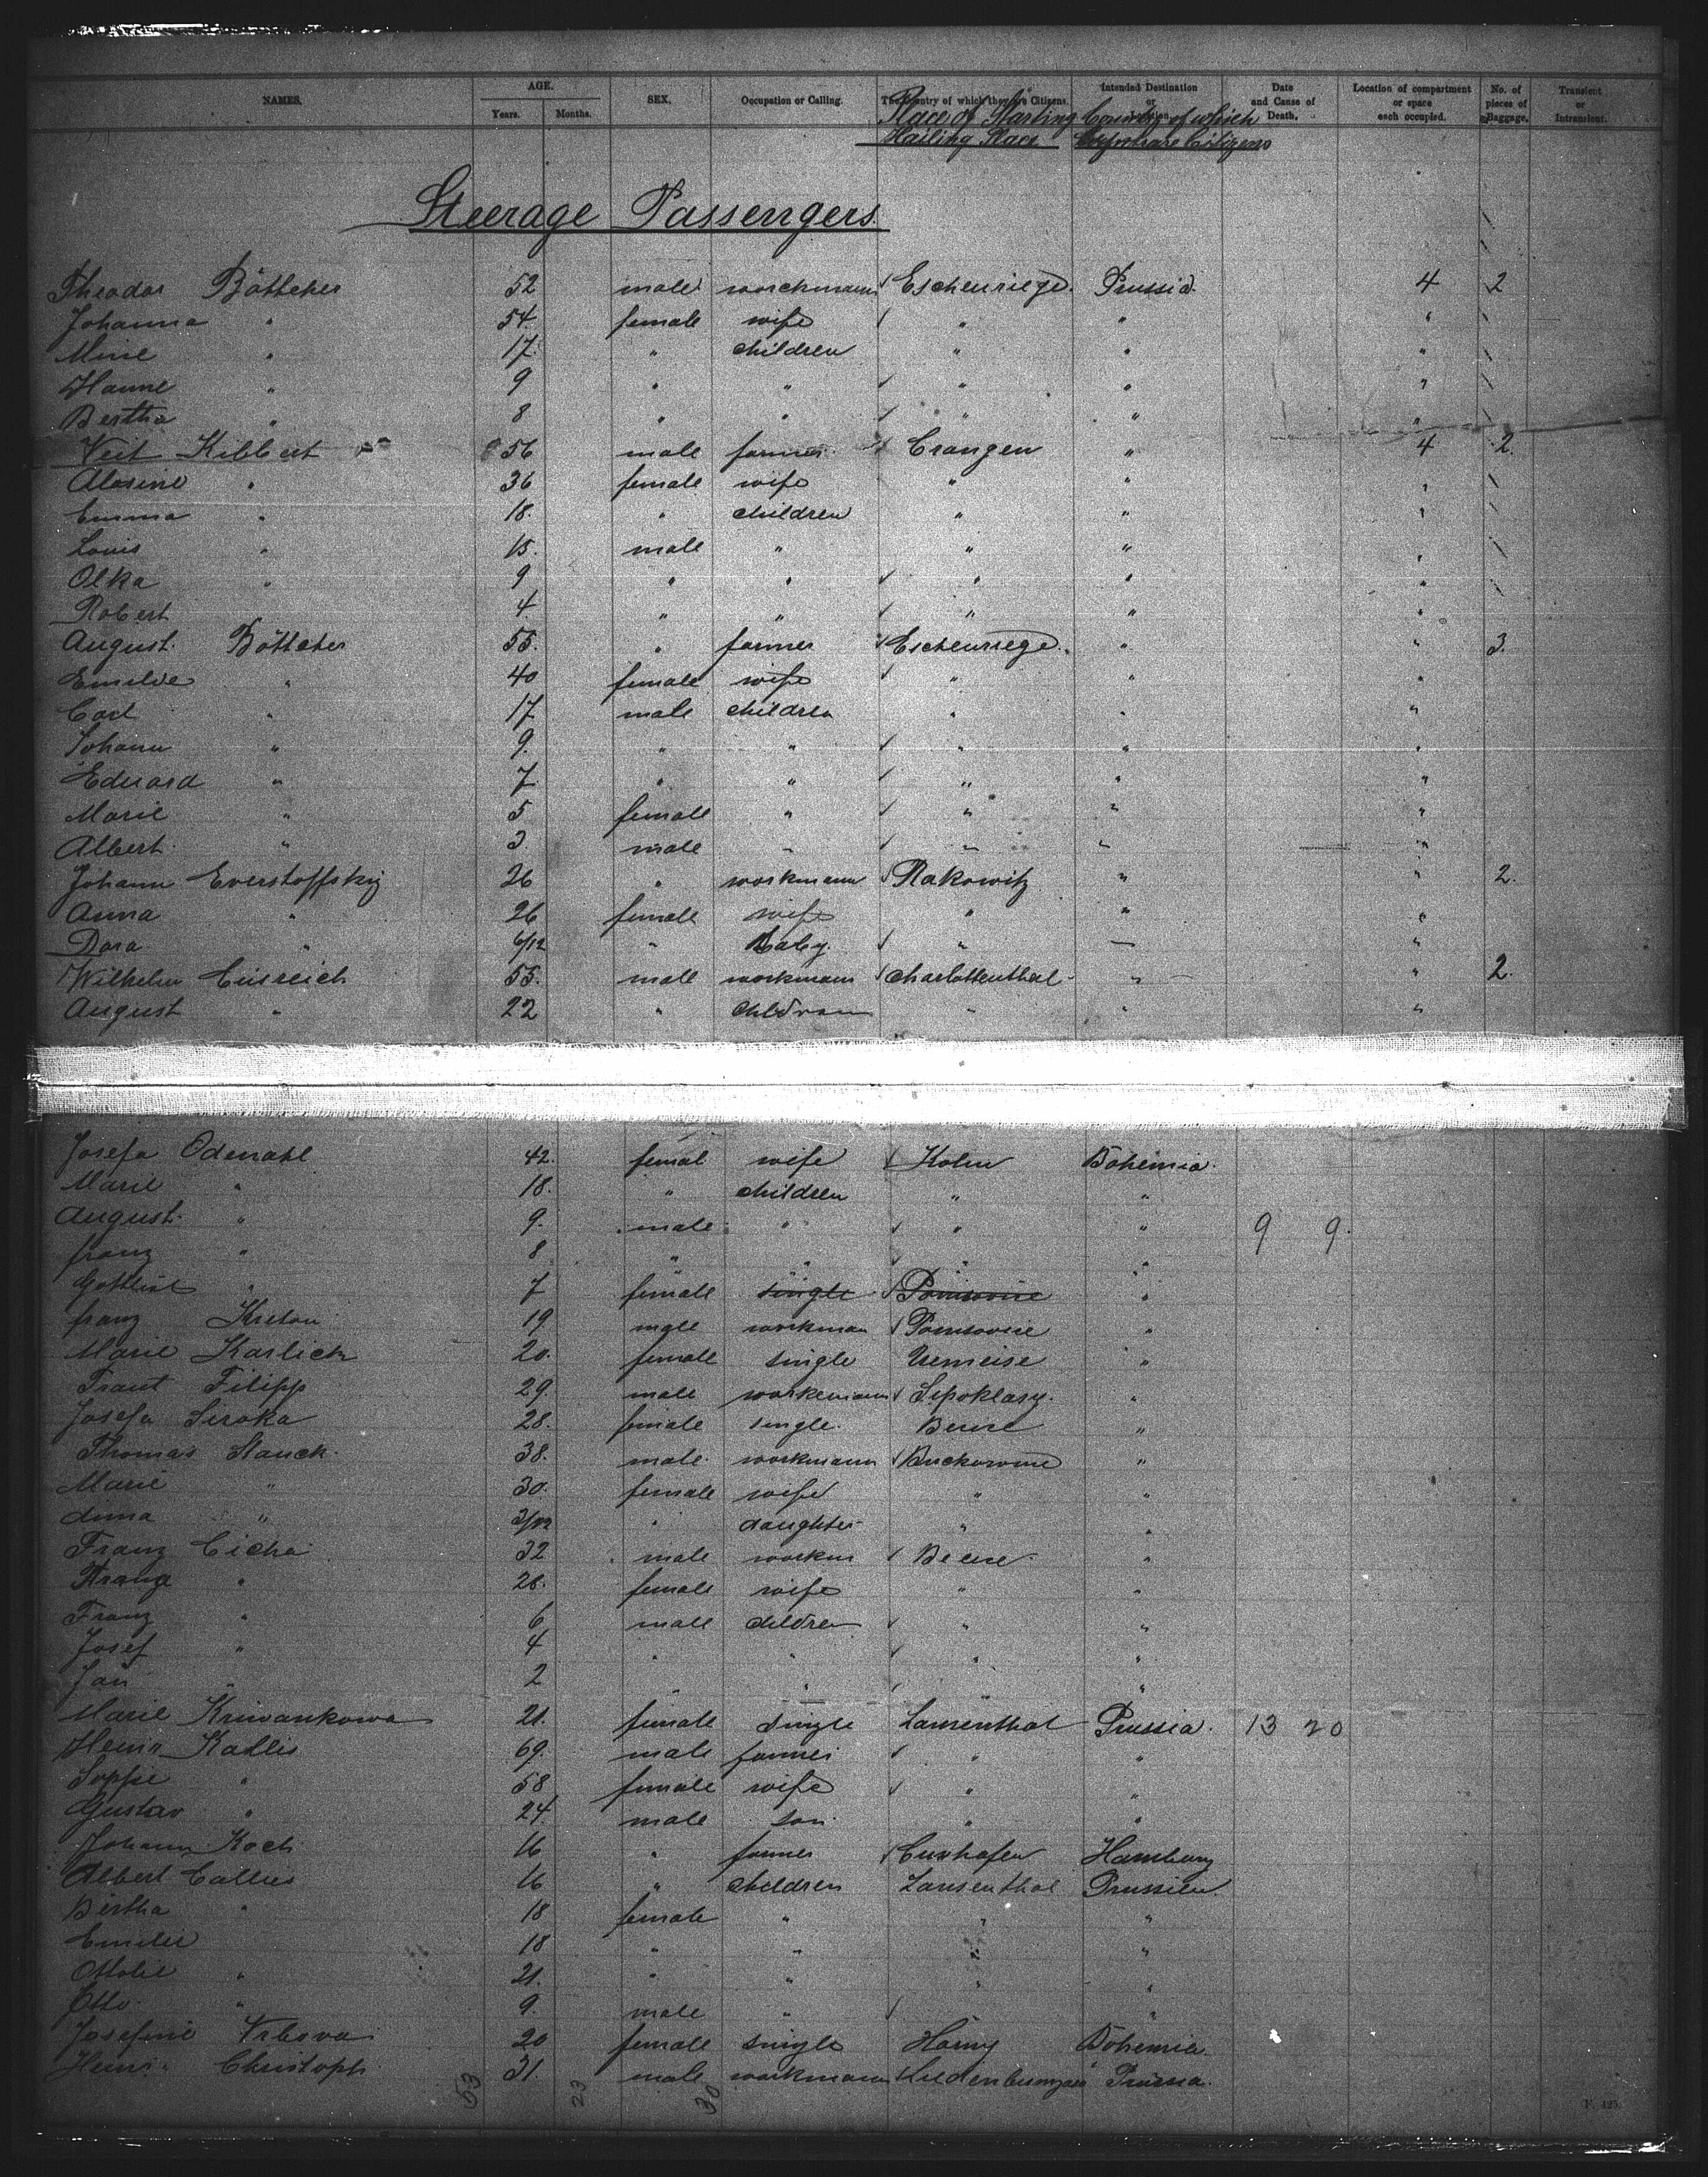 NAMES. AGE. Years. Months. SEX. Occupation or Calling. The Country of which they are Citizens. Intended Destination or Location. Date and Cause of Death. Location of compartment or space each occupied. No. of pieces of Baggage. Transient or Intransient.
Place of Starting Country of which
Hailing Place they are Citizens
Steerage Passengers.
Theodor Böttcher 52 male workmann Eschenriege. Prussia. 4 2
Johanna " 54. female wife " " "
Mine " 17. " children " " "
Hanne " 9 " " " " "
Bertha " 8 " " " " "
Veit Kibbert 56 male farmer Crangen " 4 2.
" 36 female wife " " "
Emma " 18. " children " " "
Louis " 15. male " " " "
Olka " 9 " " " " "
Robert 4. " " " " "
August. Böttcher 55. " farmer Eschenriege. " " 3.
Emilie " 40 female wife " " "
Carl " 17 male children " " "
Johann " 9. " " " " "
Eduard " 7 " " " " "
Marie " 5 female " " " "
Albert. " 3. male " " " "
Johann Everstoffsky 26 " workmann Rakowitz " " 2.
Anna " 26 female wife " " "
Dora " 6/12 " Baby. " "
Wilhelm 55. male workmann Charlottenthal " " 2.
August " 22 " children " " "
Josefa Odenahl 42. femal wife Kolin Bohemia.
Marie " 18. " children " "
August. " 9. male " " " 9 9.
franz " 8 " " " "
" 7 female single "
franz 19 male workman "
Marie Karlich 20. female single "
Filipp 29. male workemann "
Josefa Siroka 28. female single. "
Thomas Stanek. 38. male workmann Buckowine "
Marie " 30. female wife " "
Anna " 3/12 " daughter " "
Franz Cicha 32 male "
" 28. female wife " "
Franz " 6 male children " "
Josef " 4 " " " "
Jan " 2 " " " "
Marie Kriwankowa 21. female single Lansenthal Prussia. 13 20
Henir Kadlis 69. male farmer " "
Sophie " 58 female wife " "
Gustav " 24 male son " "
Johann Koch 16 " farmer Cuxhafen Hamburg
Albert Callies 16 " children Lansenthal Prussien.
Bertha " 18 female " " "
Emilie 18 " " " "
Ottolie " 21. " " " "
Otto. " 9. male " "
Josefine Vrbova 20 female single Bohemia.
Christoph 31. male workmann Prussia.
53 23 30